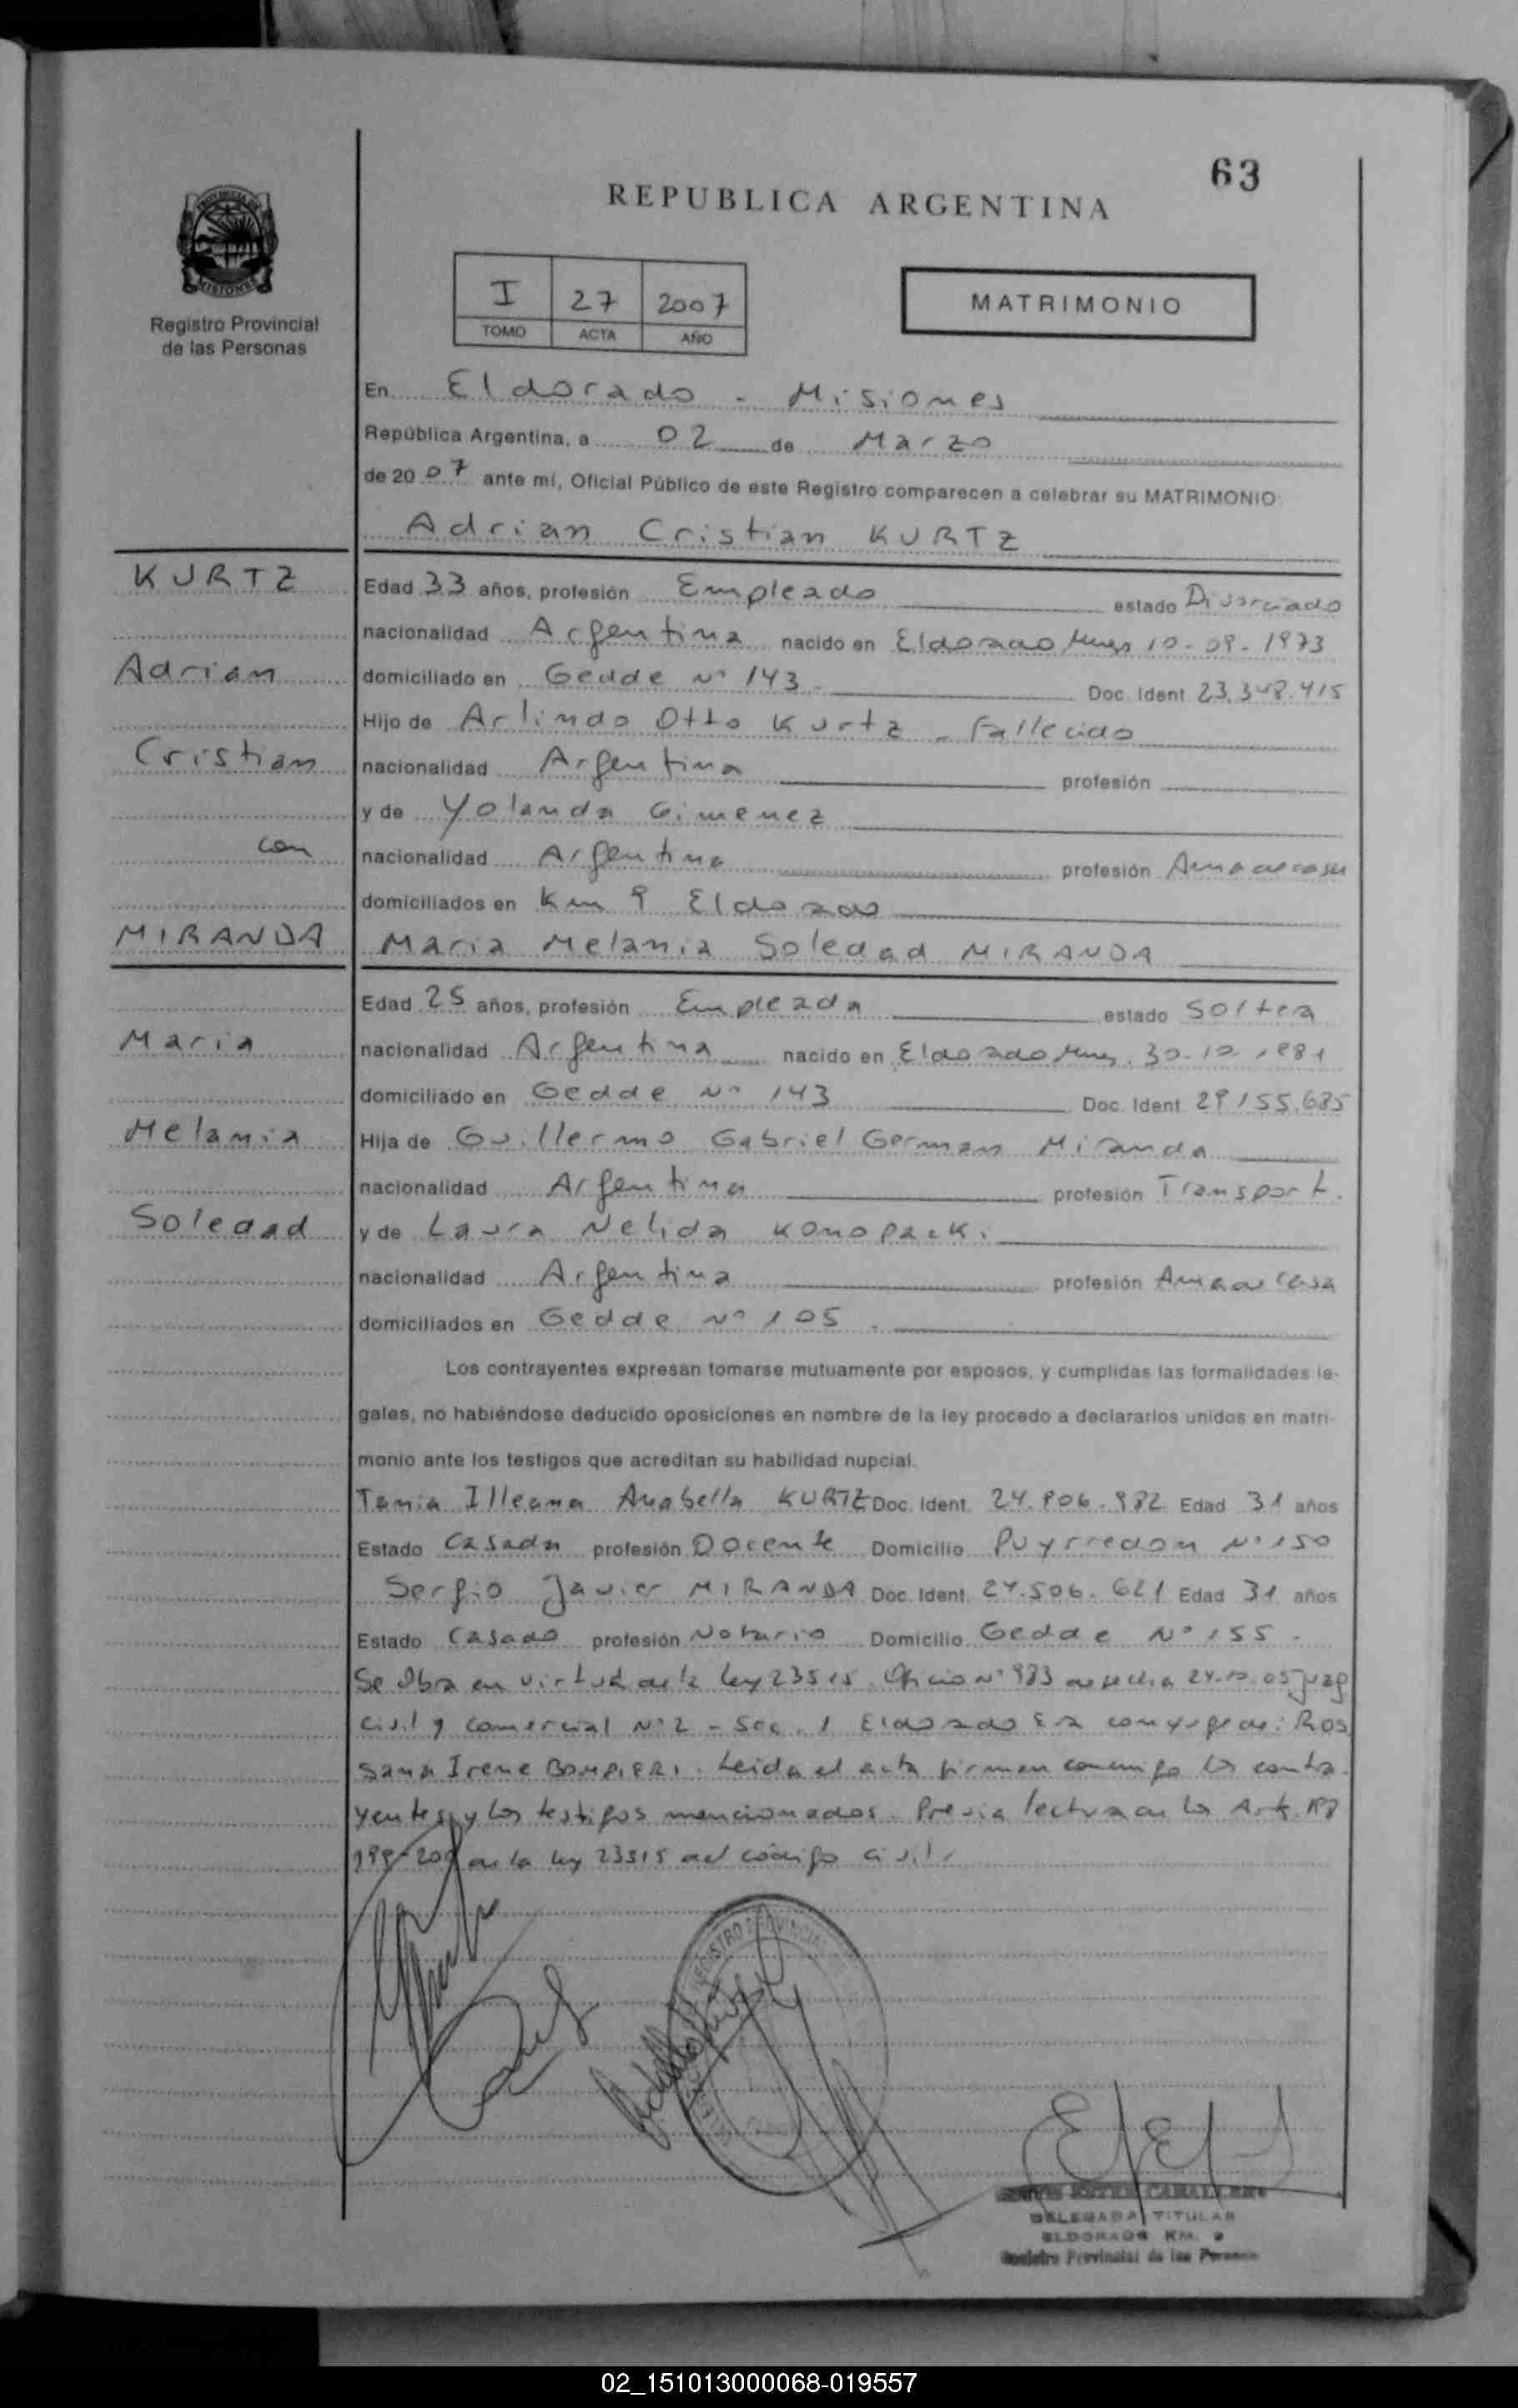 63
REPUBLICA ARGENTINA
PROVINCIA DE
MISIONES
Registro Provincial
de las Personas
I 27 2007
TOMO ACTA AÑO
MATRIMONIO
En Eldorado - Misiones
República Argentina, a 02 de Marzo
de 2007 ante mí, Oficial Público de este Registro comparecen a celebrar su MATRIMONIO:
Adrian Cristian KURTZ
KURTZ
Adrian
Cristian
con
MIRANDA
Maria
Melania
Soledad
Edad 33 años, profesión Empleado estado Divorciado
nacionalidad Argentina nacido en Eldorado 1973
domiciliado en Gedde Nº 143 Doc. Ident. 415
Hijo de Arlindo Otto Kurtz - Fallecido
nacionalidad Argentina profesión
y de Yolanda Gimenez
nacionalidad Argentina profesión Ama de casa
domiciliados en Km 9 Eldorado
Maria Melania Soledad MIRANDA
Edad 25 años, profesión Empleada estado Soltera
nacionalidad Argentina nacido en Eldorado 30-10-1981
domiciliado en Gedde Nº 143 Doc. Ident. 29155.685
Hija de Guillermo Gabriel German Miranda
nacionalidad Argentina profesión Transport.
y de Laura Nelida Konopacki
nacionalidad Argentina profesión Ama de Casa
domiciliados en Gedde Nº 105.
Los contrayentes expresan tomarse mutuamente por esposos, y cumplidas las formalidades le-
gales, no habiéndose deducido oposiciones en nombre de la ley procedo a declararlos unidos en matri-
monio ante los testigos que acreditan su habilidad nupcial.
Tania Illeana Anabella KURTZ Doc. Ident. 24.906.982 Edad 31 años
Estado Casada profesión Docente Domicilio Puyrredon Nº 150
Sergio Javier MIRANDA Doc. Ident. 24.506.621 Edad 31 años
Estado Casado profesión Notario Domicilio Gedde Nº 155.
Se Obra en virtud de la ley 23515. Oficio Nº 983 de fecha 24.10.05 Juzg
Civil y Comercial Nº 2 - Sec. 1 Eldorado Ex conyuge de: Ros
sana Irene BOMPIERI. Leida el acta firman conmigo los contra-
yentes y los testigos mencionados. Previa lectura de los Art. 198
199-200 de la ley 23515 del código civil.
REGISTRO PROVINCIAL
ESTER CABALLERO
DELEGADA TITULAR
ELDORADO KM. 9
Registro Provincial de las Personas
02_151013000068-019557